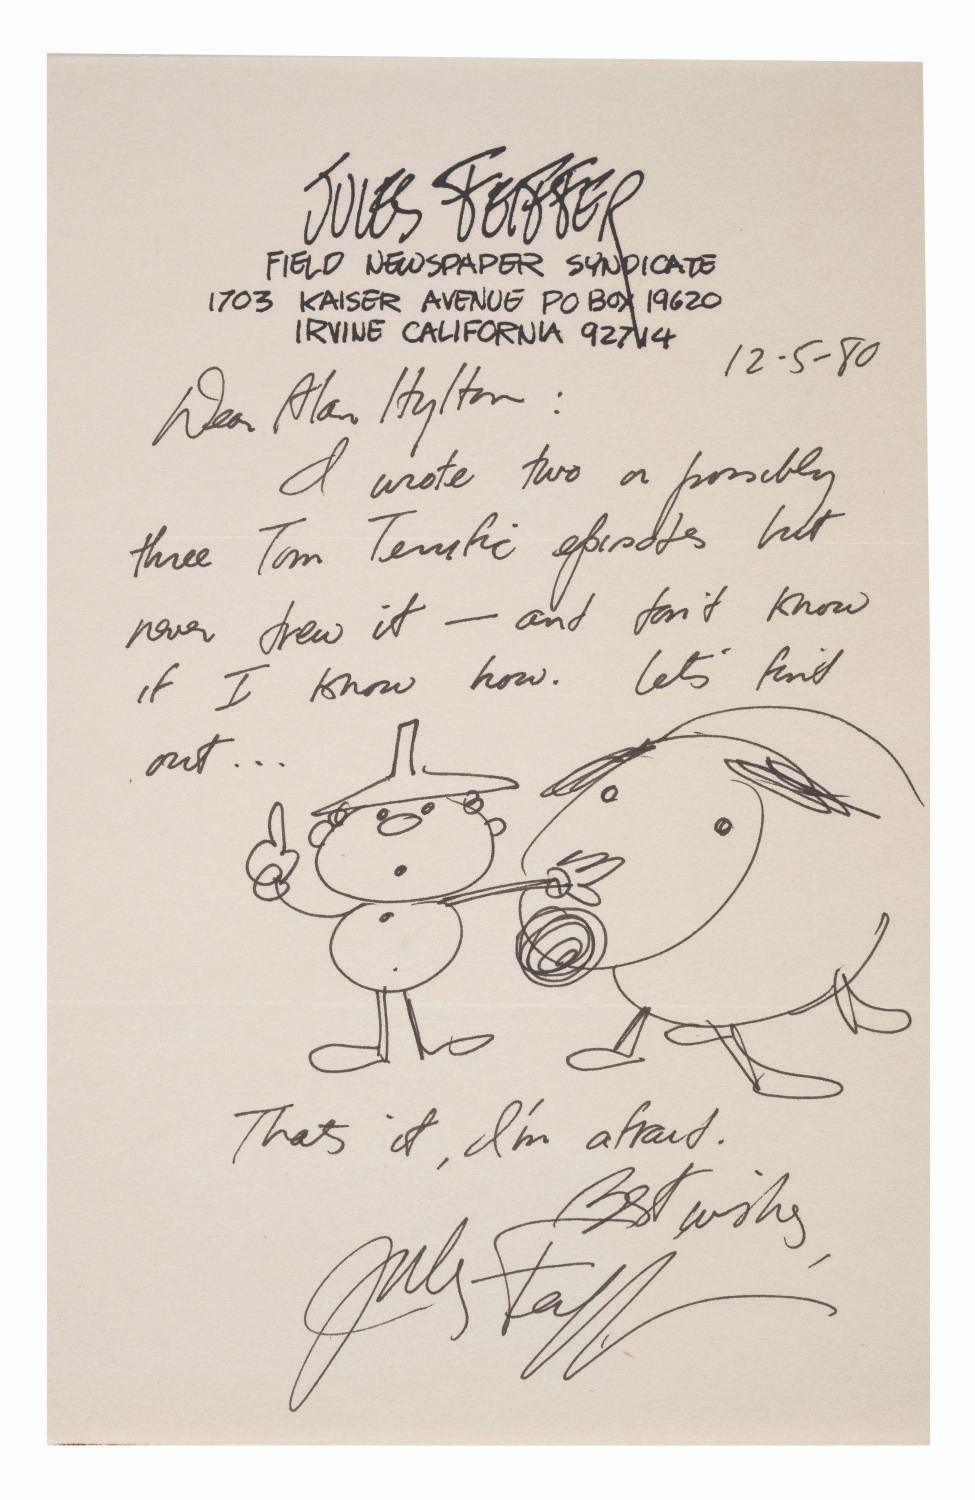 JULES FEIFFER
FIELD NEWSPAPER SYNDICATE
1703 KAISER AVENUE PO BOX 19620
IRVINE CALIFORNIA 92714
12-5-80
Dear Alan Hylton :
I wrote two or possibly
three Tom Terrific episodes but
never drew it — and don't know
if I know how. Let's find
out...
Thats it, I'm afraid.
Best wishes,
Jules Feiffer